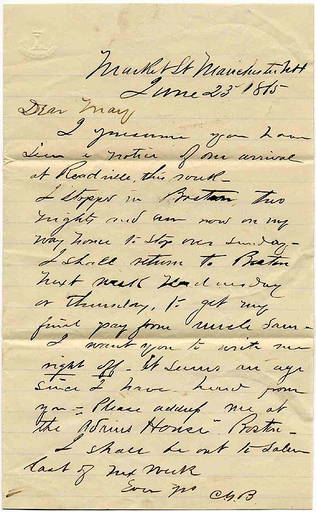 Market St Manchester NH
June 25 1865
Dear May
I presume you have
seen a notice of our arrival
at Readville, this week -
I stopped in Boston two
nights and am now on my
way home to stop over sunday -
I shall return to Boston
next week Wednesday
or Thursday, to get my
final pay from uncle Sam -
I want you to write me
right off - It seems an age
since I have heard from
you - Please address me at
the Adams House Boston -
I shall be out to Salem
last of next Week
Ever Yrs
C.G.B